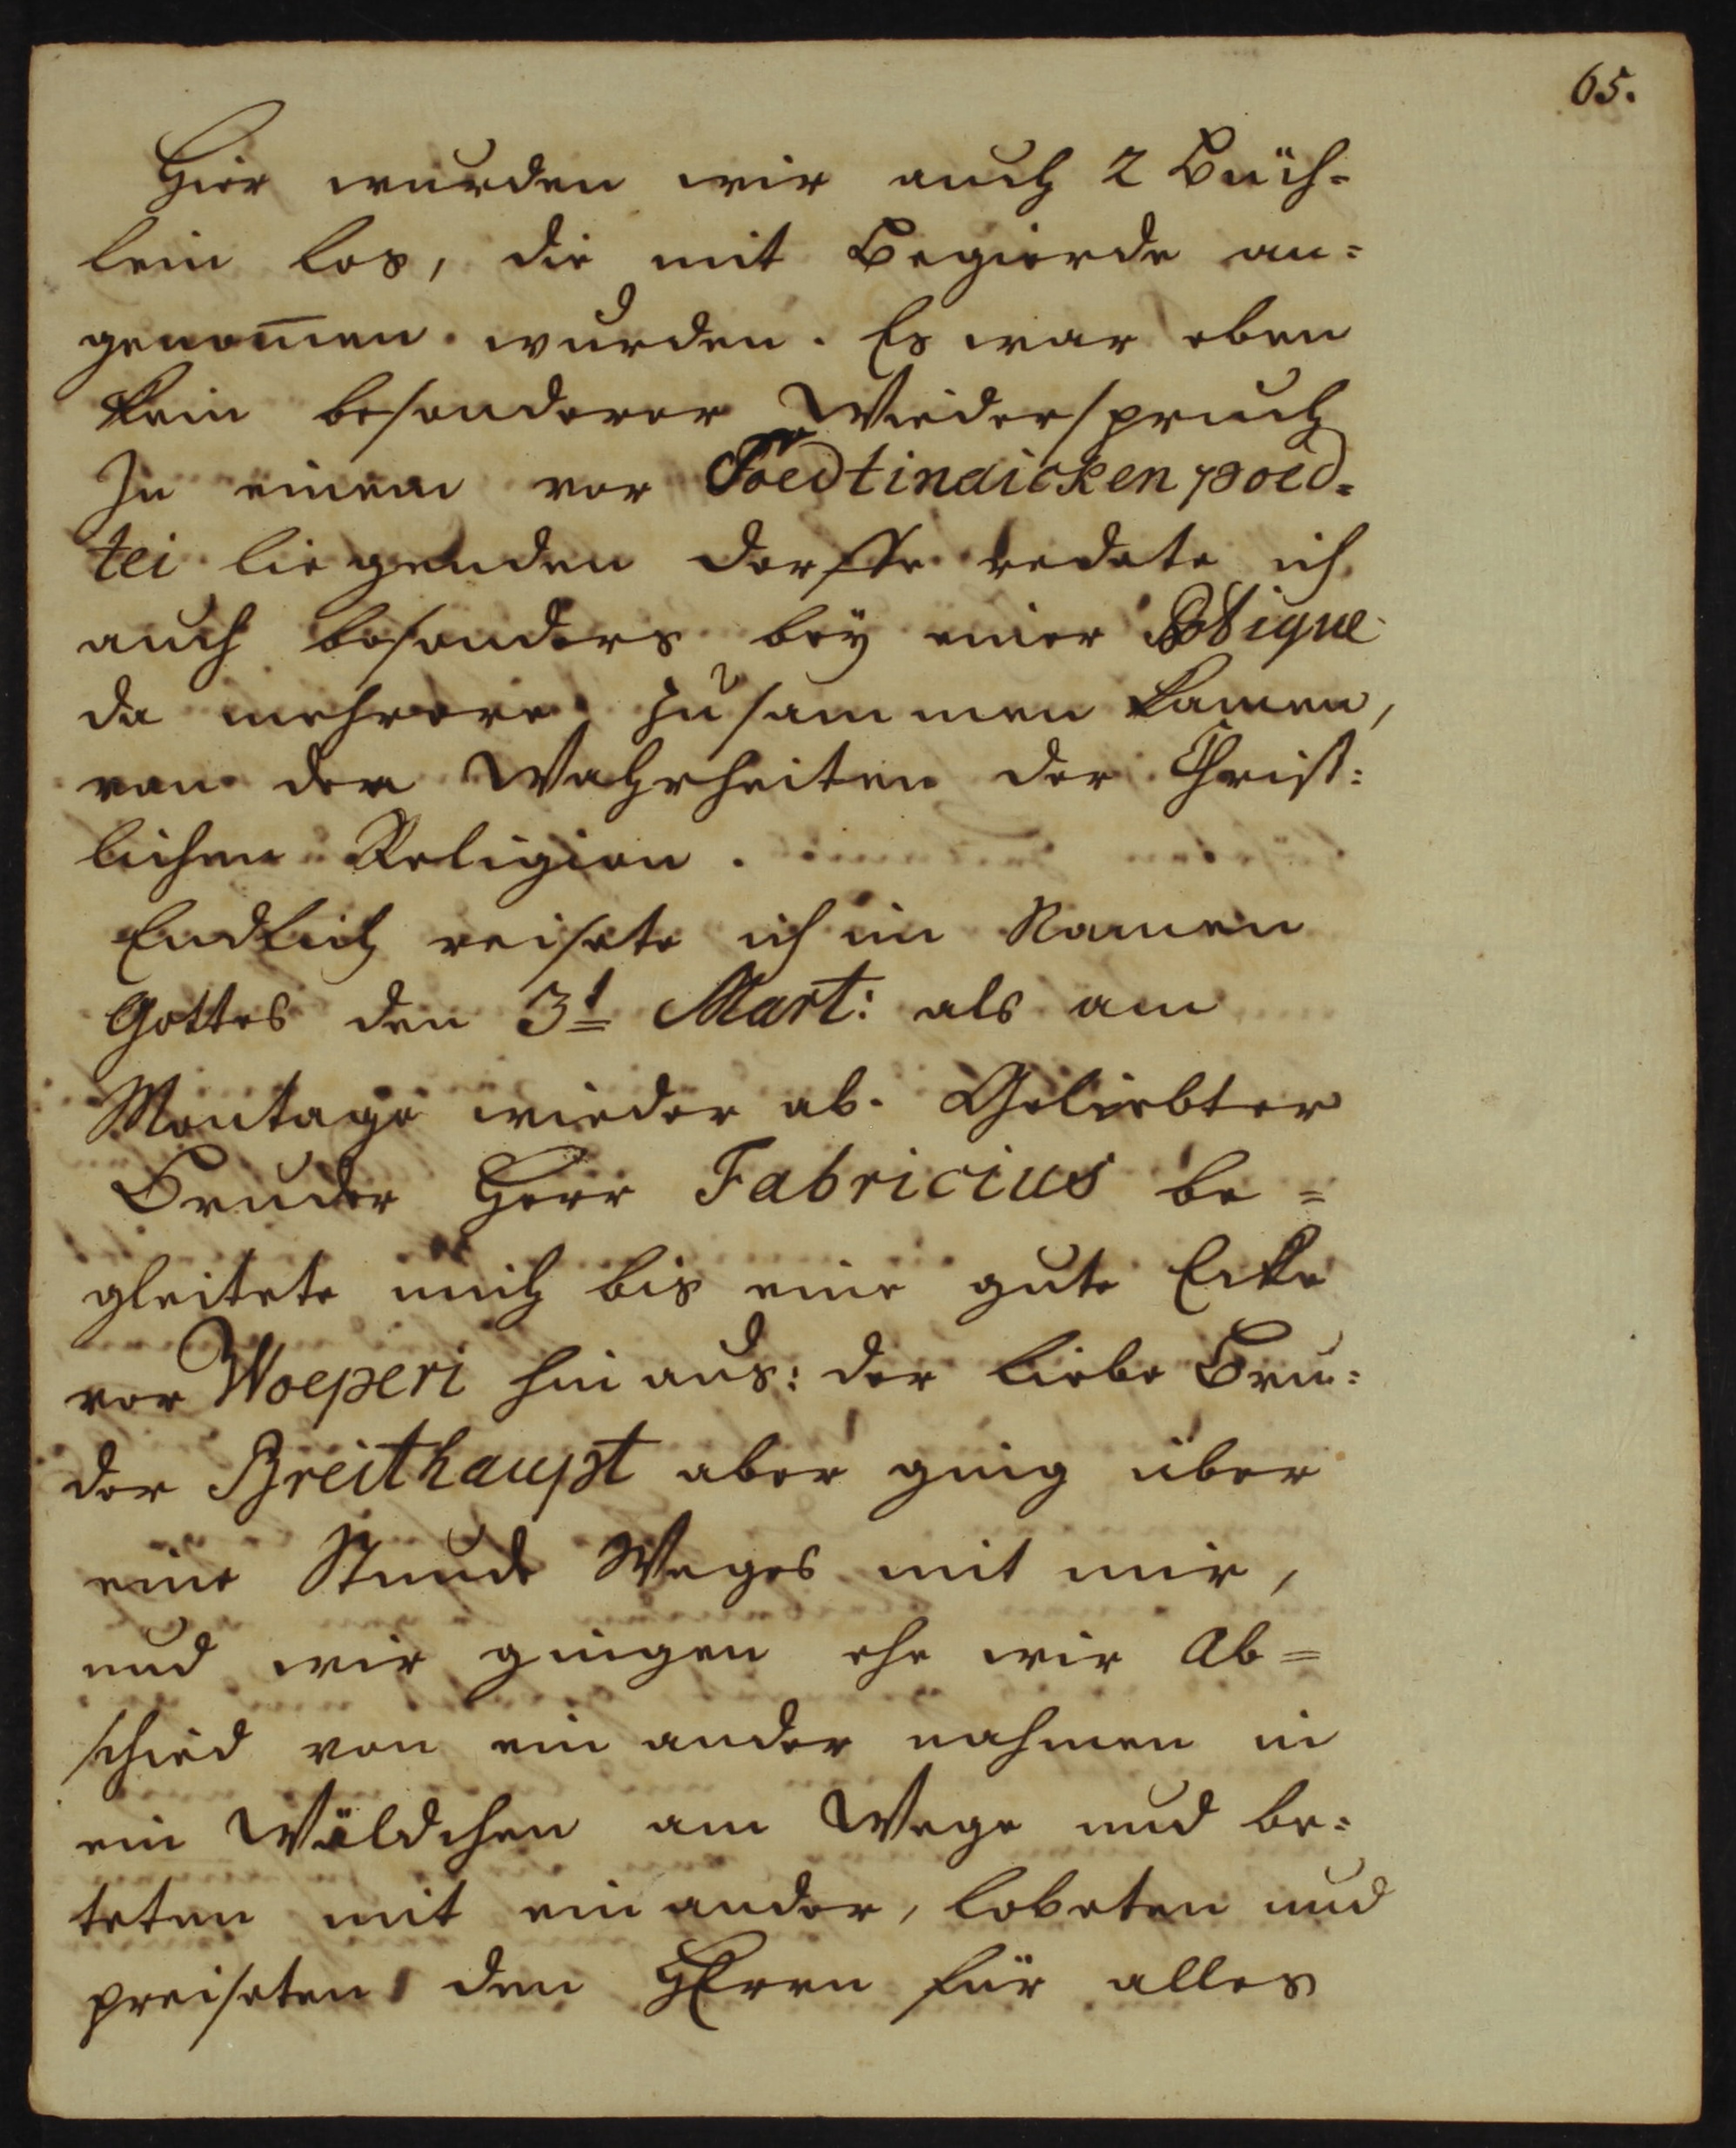 65.
Hier wurden wir auch 2 Büch=
lein los, die mit Begierde an=
genom̅en wurden. Es war eben
kein besonderer Wiederspruch
In einem vor Poedtinaicken poed=
tei liegenden Dorffe redete ich
auch besonders bey einer Botique
da mehrere zusammen kamen,
von den Wahrheiten der Christ=
lichen Religion.
Endlich reisete ich im Namen
Gottes den 3t Mart: als am
Montage wieder ab. Geliebter
Bruder Herr Fabricius be=
gleitete mich bis eine gute Ecke
vor Woeperi hinaus: der liebe Bru=
der Breithaupt aber ging über
eine Stunde Weges mit mir,
und wir gingen ehe wir Ab=
schied von ein ander nahmen in
ein Wäldchen am Wege und be=
teten mit ein ander, lobeten und
preiseten den HErrn für alles